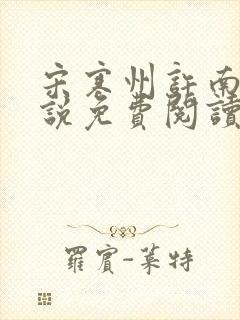 宋寒州許南
說免費閱讀
羅賓-萊特